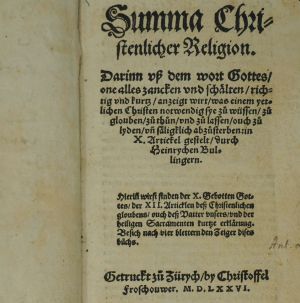 Summa Chri-
stenlicher Religion.
Darinn vß dem wort Gottes/
one alles zancken vnd schälten/ rich-
tig vnd kurtz/ anzeigt wirt/ was einem yet-
lichen Christen notwendig sye zů wüssen/ zů
glouben/ zů thůn/ vnd zů lassen/ ouch zů
lyden/ vñ säligklich abzůsterben: in
X. Artickel gestelt/ durch
Heinrychen Bul-
lingern.
Hierinn wirst finden der X. Gebotten Got-
tes/ der XII. Articklen deß Christenlichen
gloubens/ ouch deß Vatter vnsers/ vnd der
heiligen Sacramenten kurtze erklärung.
Besich nach vier blettern den Zeiger dises
bůchs.
Ant.
Getruckt zů Zürych/ by Christoffel
Froschouwer. M. D. LXXVI.